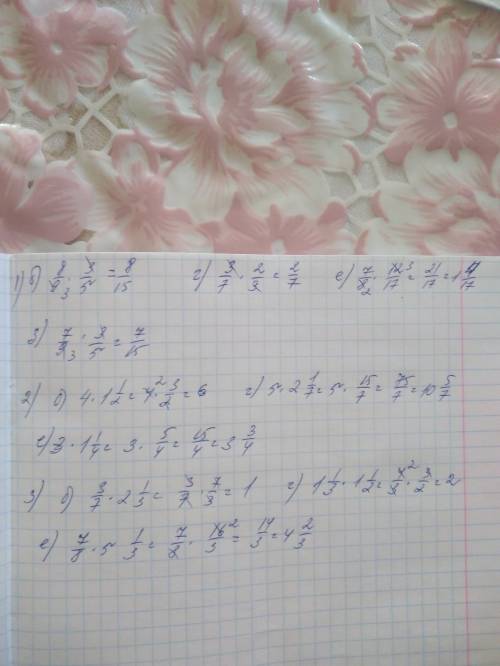 1) б) 8/9₃ · 3/5 = 8/15 г) 3/7 · 2/3 = 2/7 е) 7/8₂ · 12³/17 = 21/17 = 1 4/17
з) 7/9₃ · 3/5 = 7/15
2) б) 4 · 1 1/2 = 4² · 3/2 = 6 г) 5 · 2 1/7 = 5 · 15/7 = 75/7 = 10 5/7
е) 3 · 1 1/4 = 3 · 5/4 = 15/4 = 3 3/4
3) б) 3/7 · 2 1/3 = 3/7 · 7/3 = 1 г) 1 1/3 · 1 1/2 = 4²/3 · 3/2 = 2
е) 7/8 · 5 1/3 = 7/8 · 16²/3 = 14/3 = 4 2/3